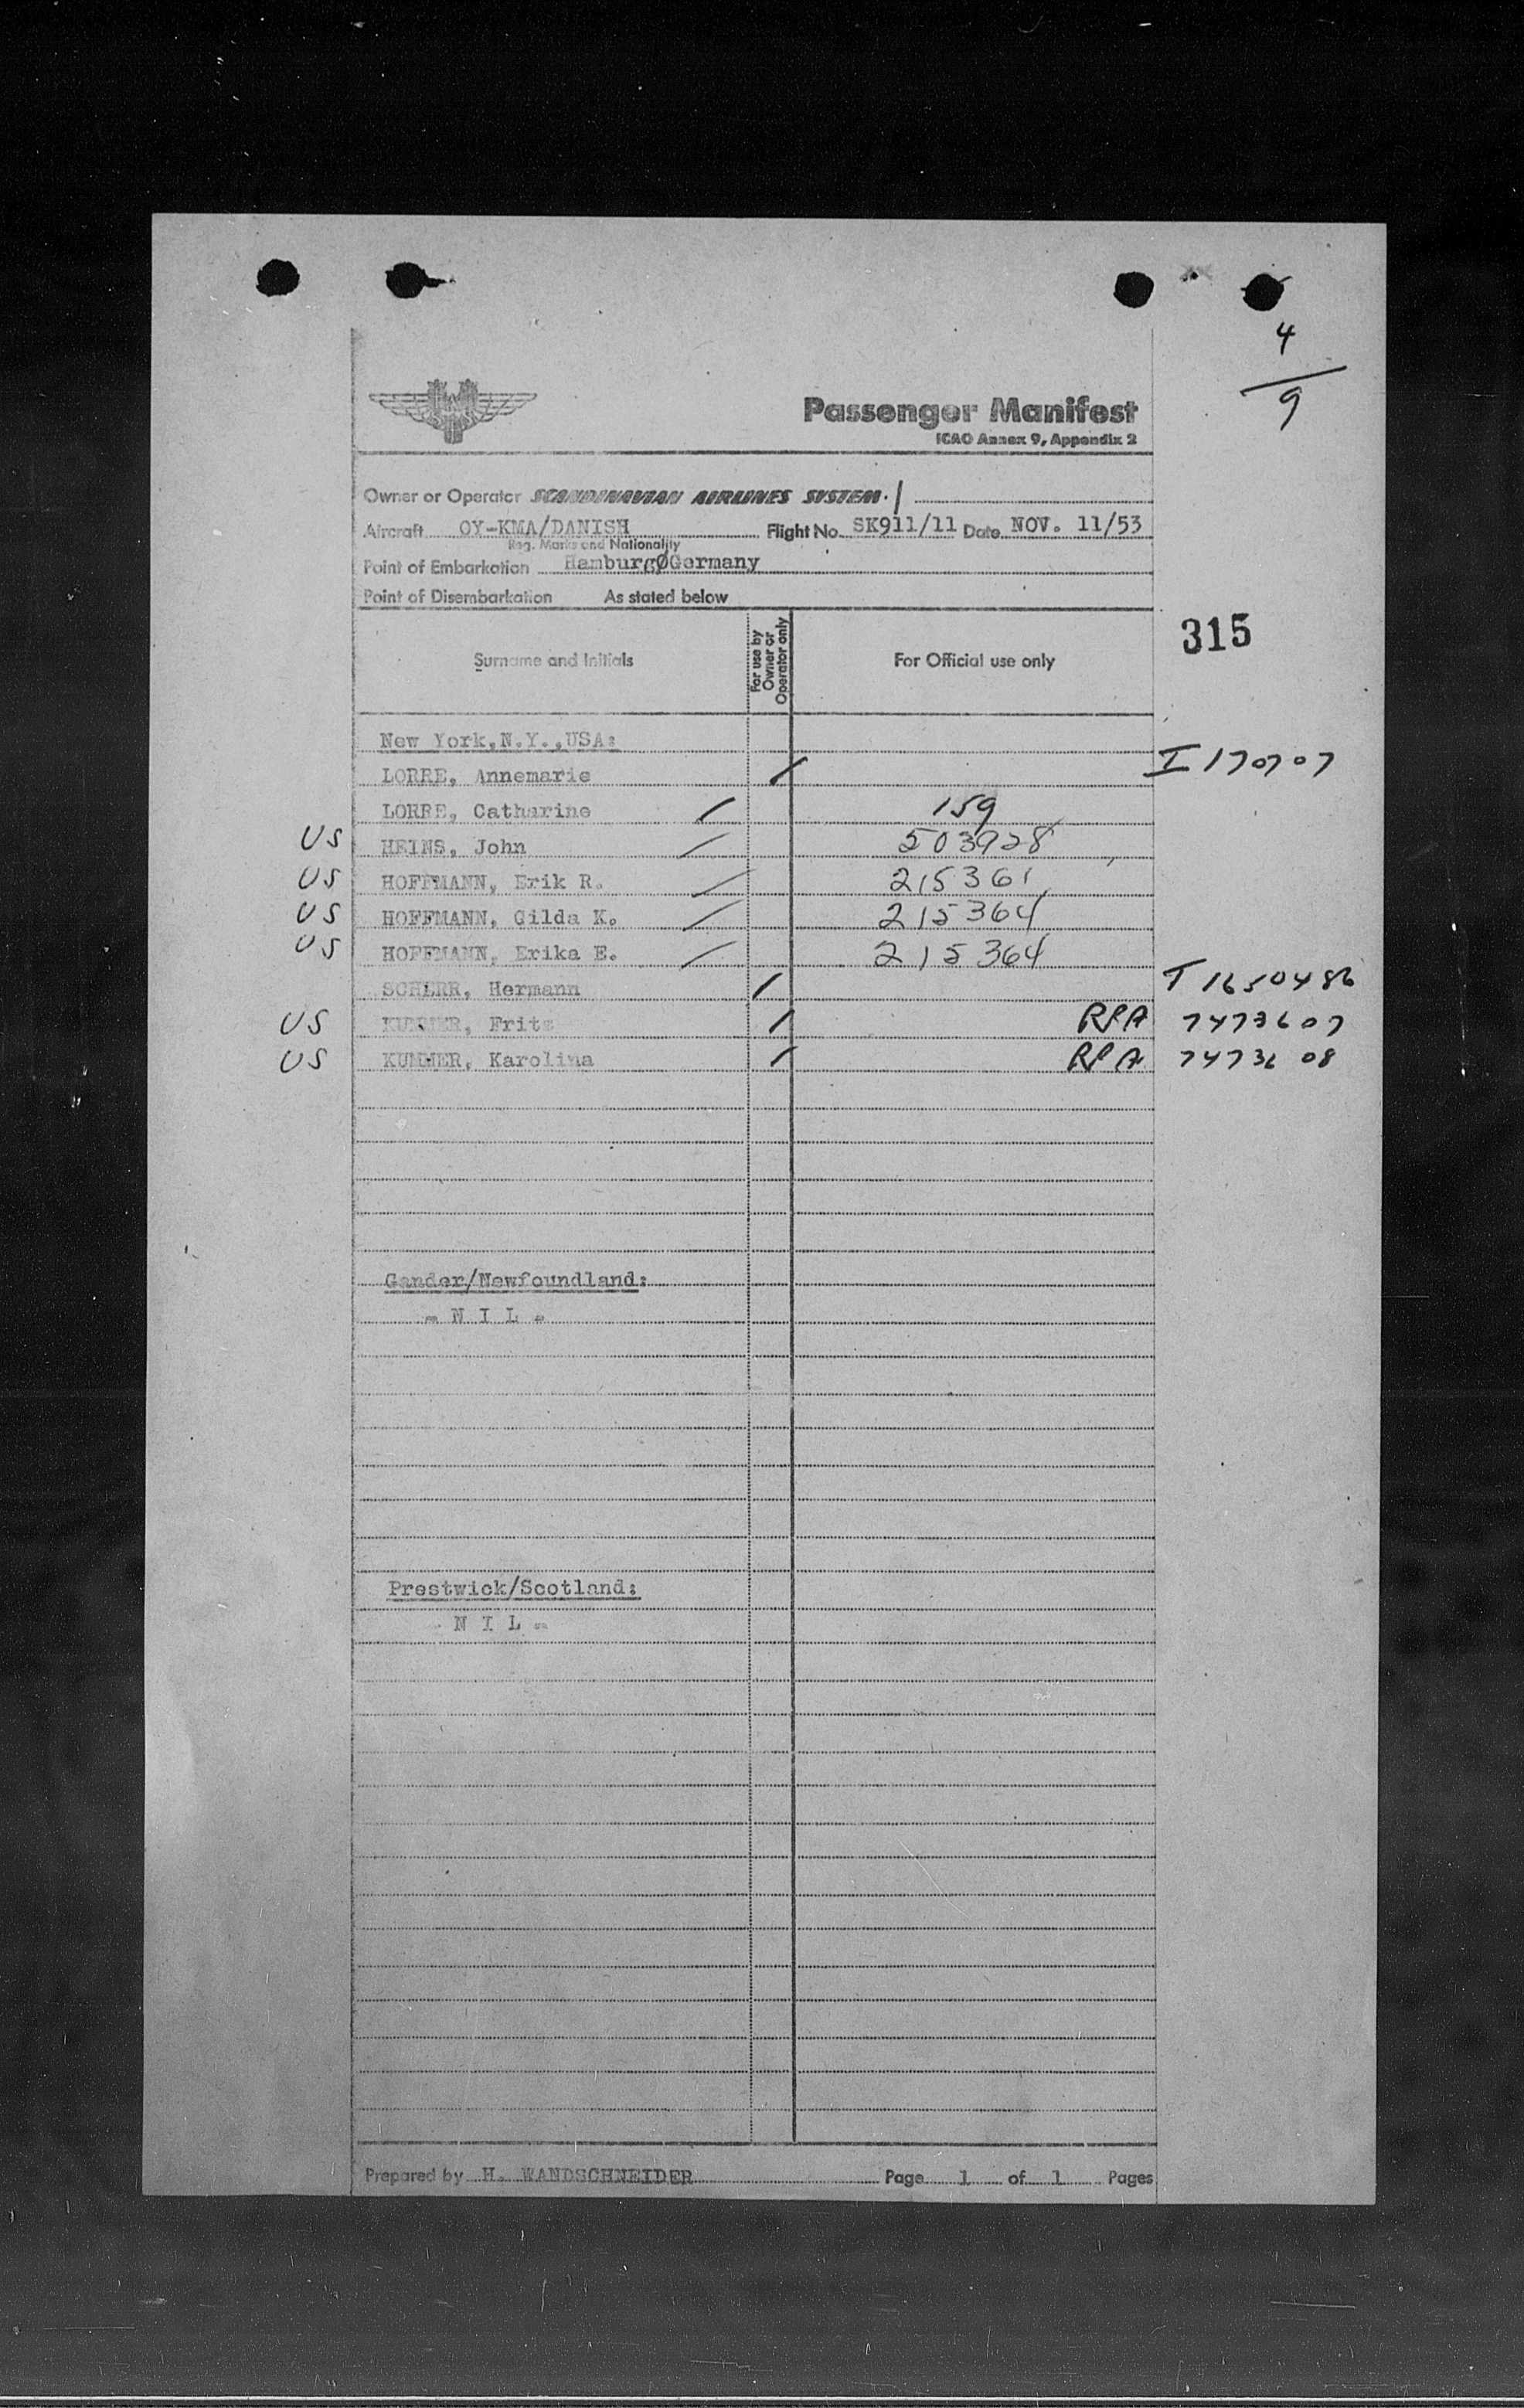 4
9
Passenger Manifest
ICAO Annex 9, Appendix 2
Owner or Operator SCANDINAVIAN AIRLINES SYSTEM.
Aircraft OY-KMA/DANISH Flight No. SK911/11 Date NOV. 11/53
Reg. Marks and Nationality
Point of Embarkation HamburgØGermany
Point of Disembarkation As stated below
315
Surname and Initials For use by Owner or Operator only For Official use only
New York,N.Y.,USA:
LORRE, Annemarie I 170707
LORRE, Catharine 159
US HEINS, John 503928
US HOFFMANN, Erik R. 215361
US HOFFMANN, Gilda K. 215364
US HOFFMANN, Erika E. 215364
SCHERR, Hermann T 1650486
US KUMMER, Fritz RPA 7473607
US KUMMER, Karolina RPA 7473608
Gander/Newfoundland:
- N I L -
Prestwick/Scotland:
- N I L -
Prepared by H. WANDSCHNEIDER Page 1 of 1 Pages